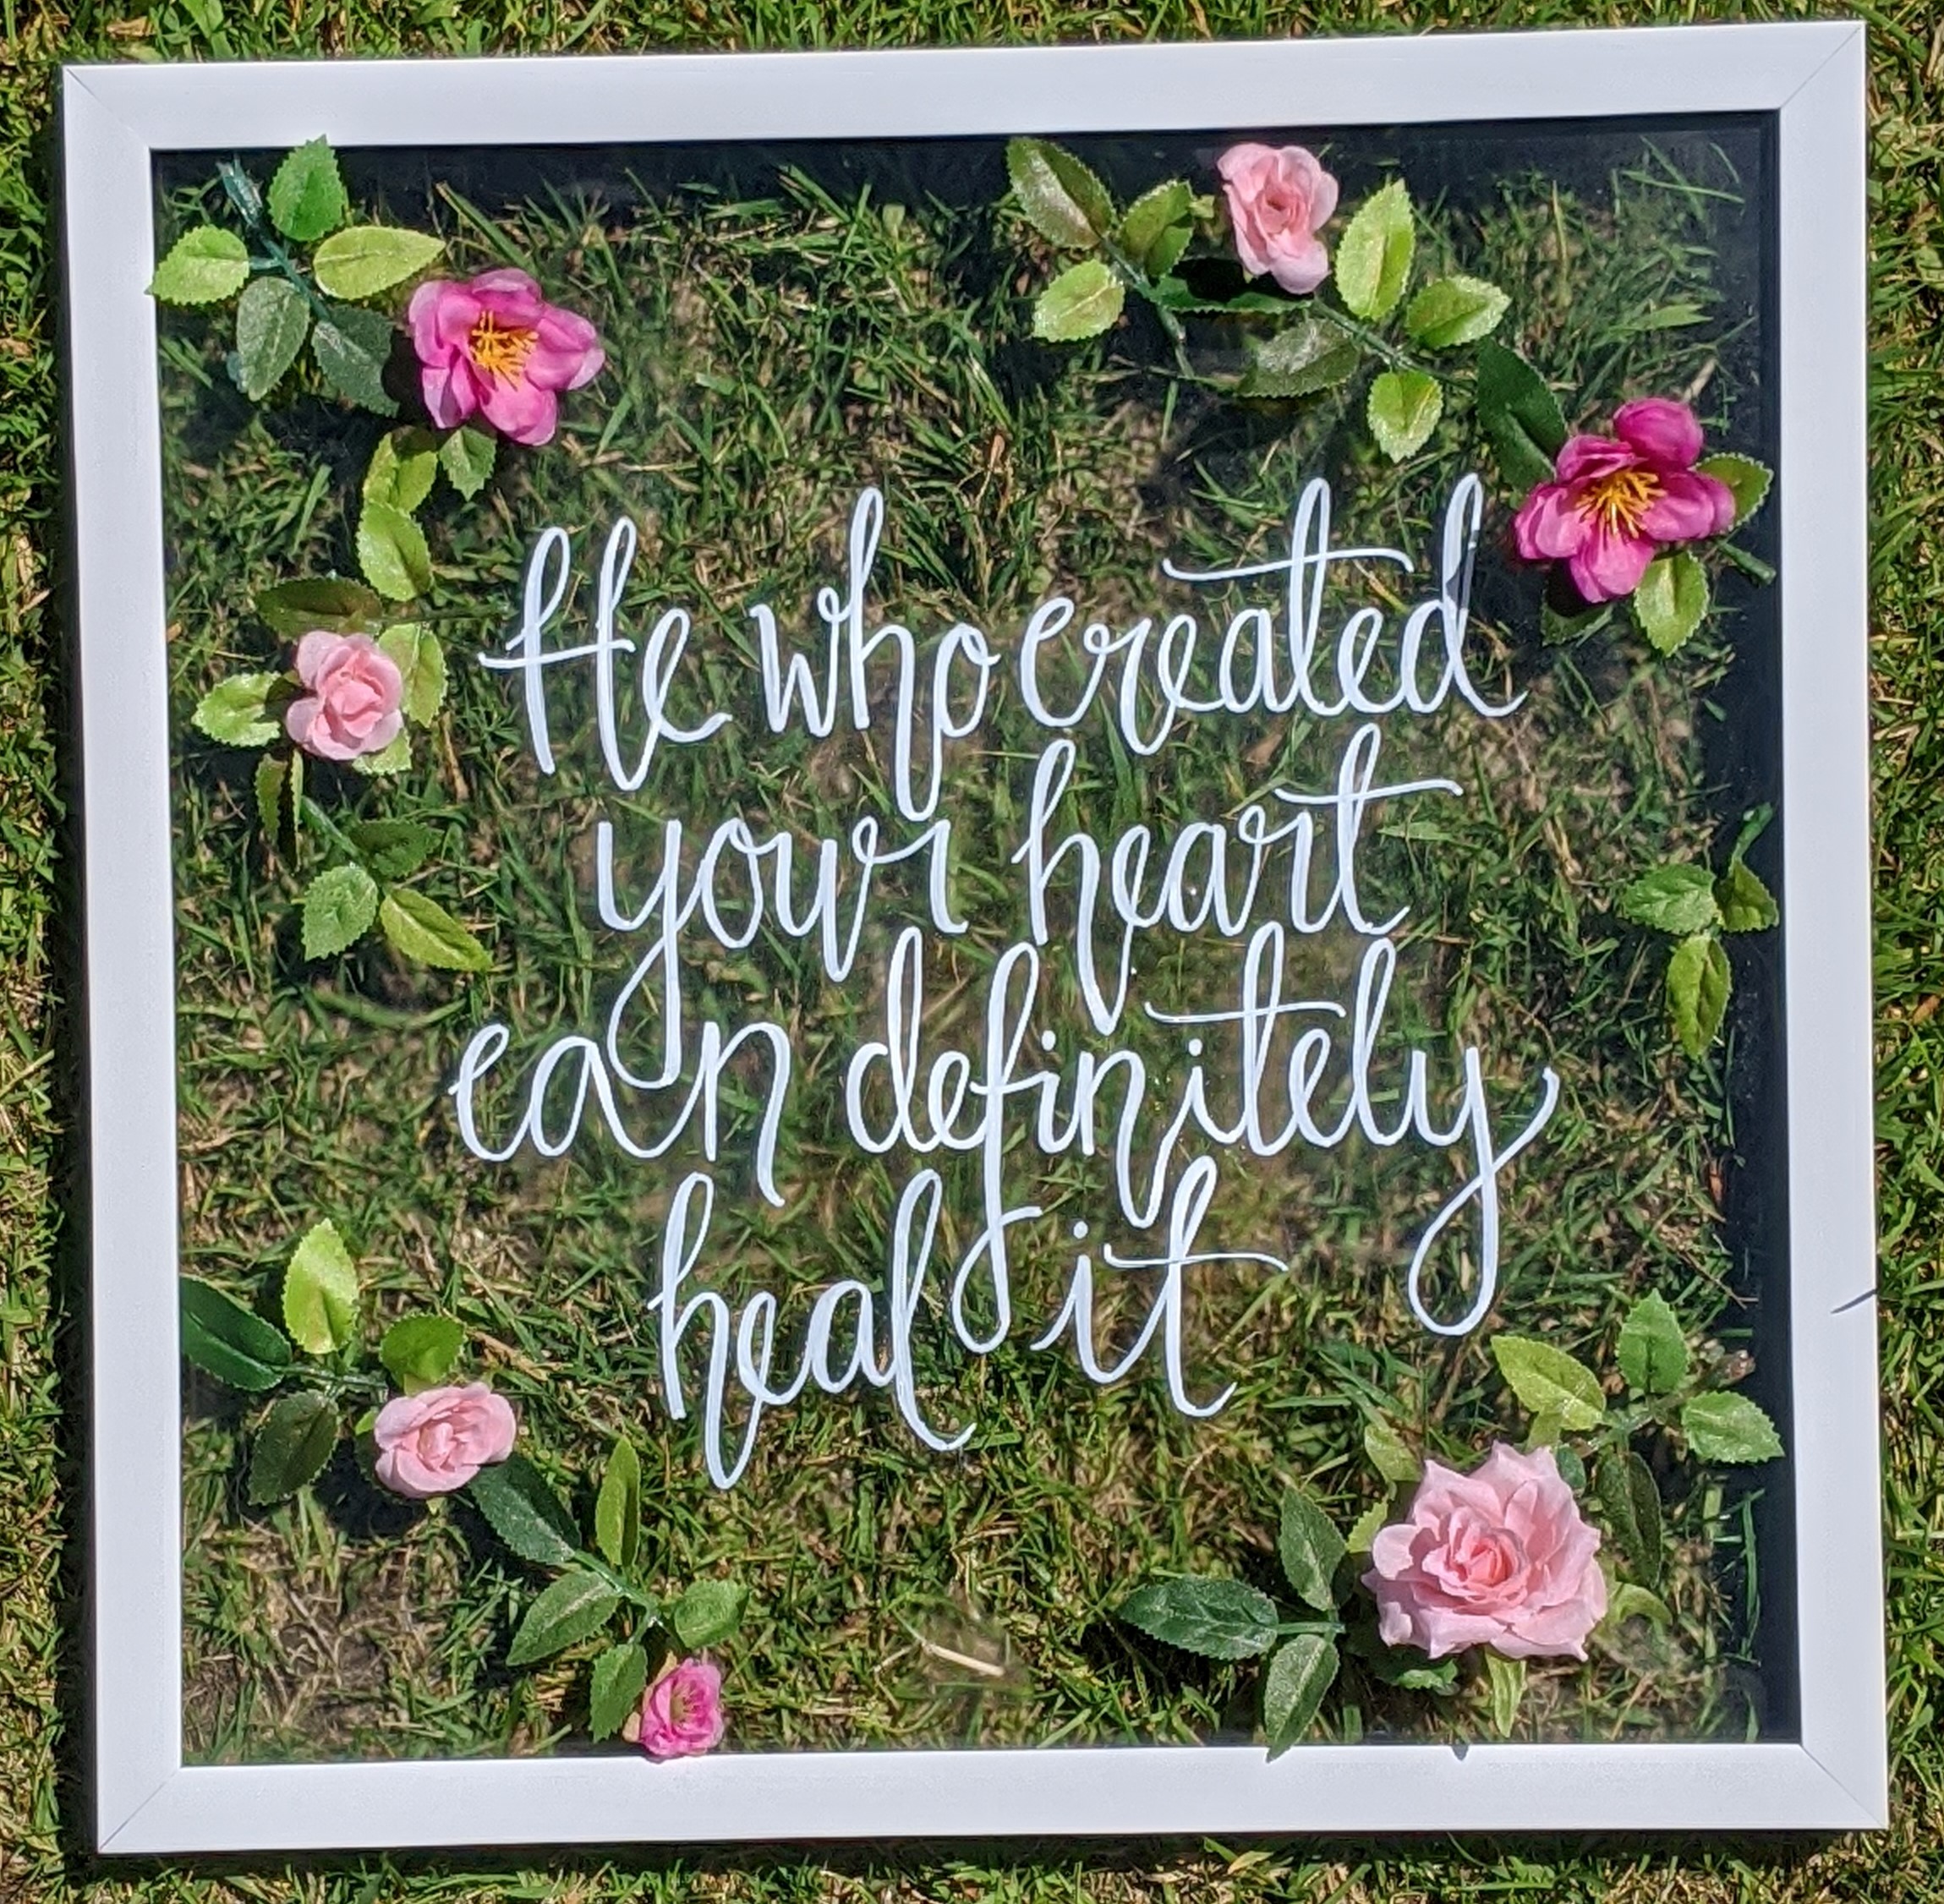 He who created
your heart
can definitely
heal it